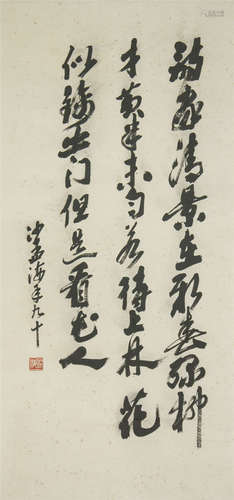 诗家清景在新春绿柳
才黄半未匀若待上林花
似锦出门但是看花人
沙孟海年九十